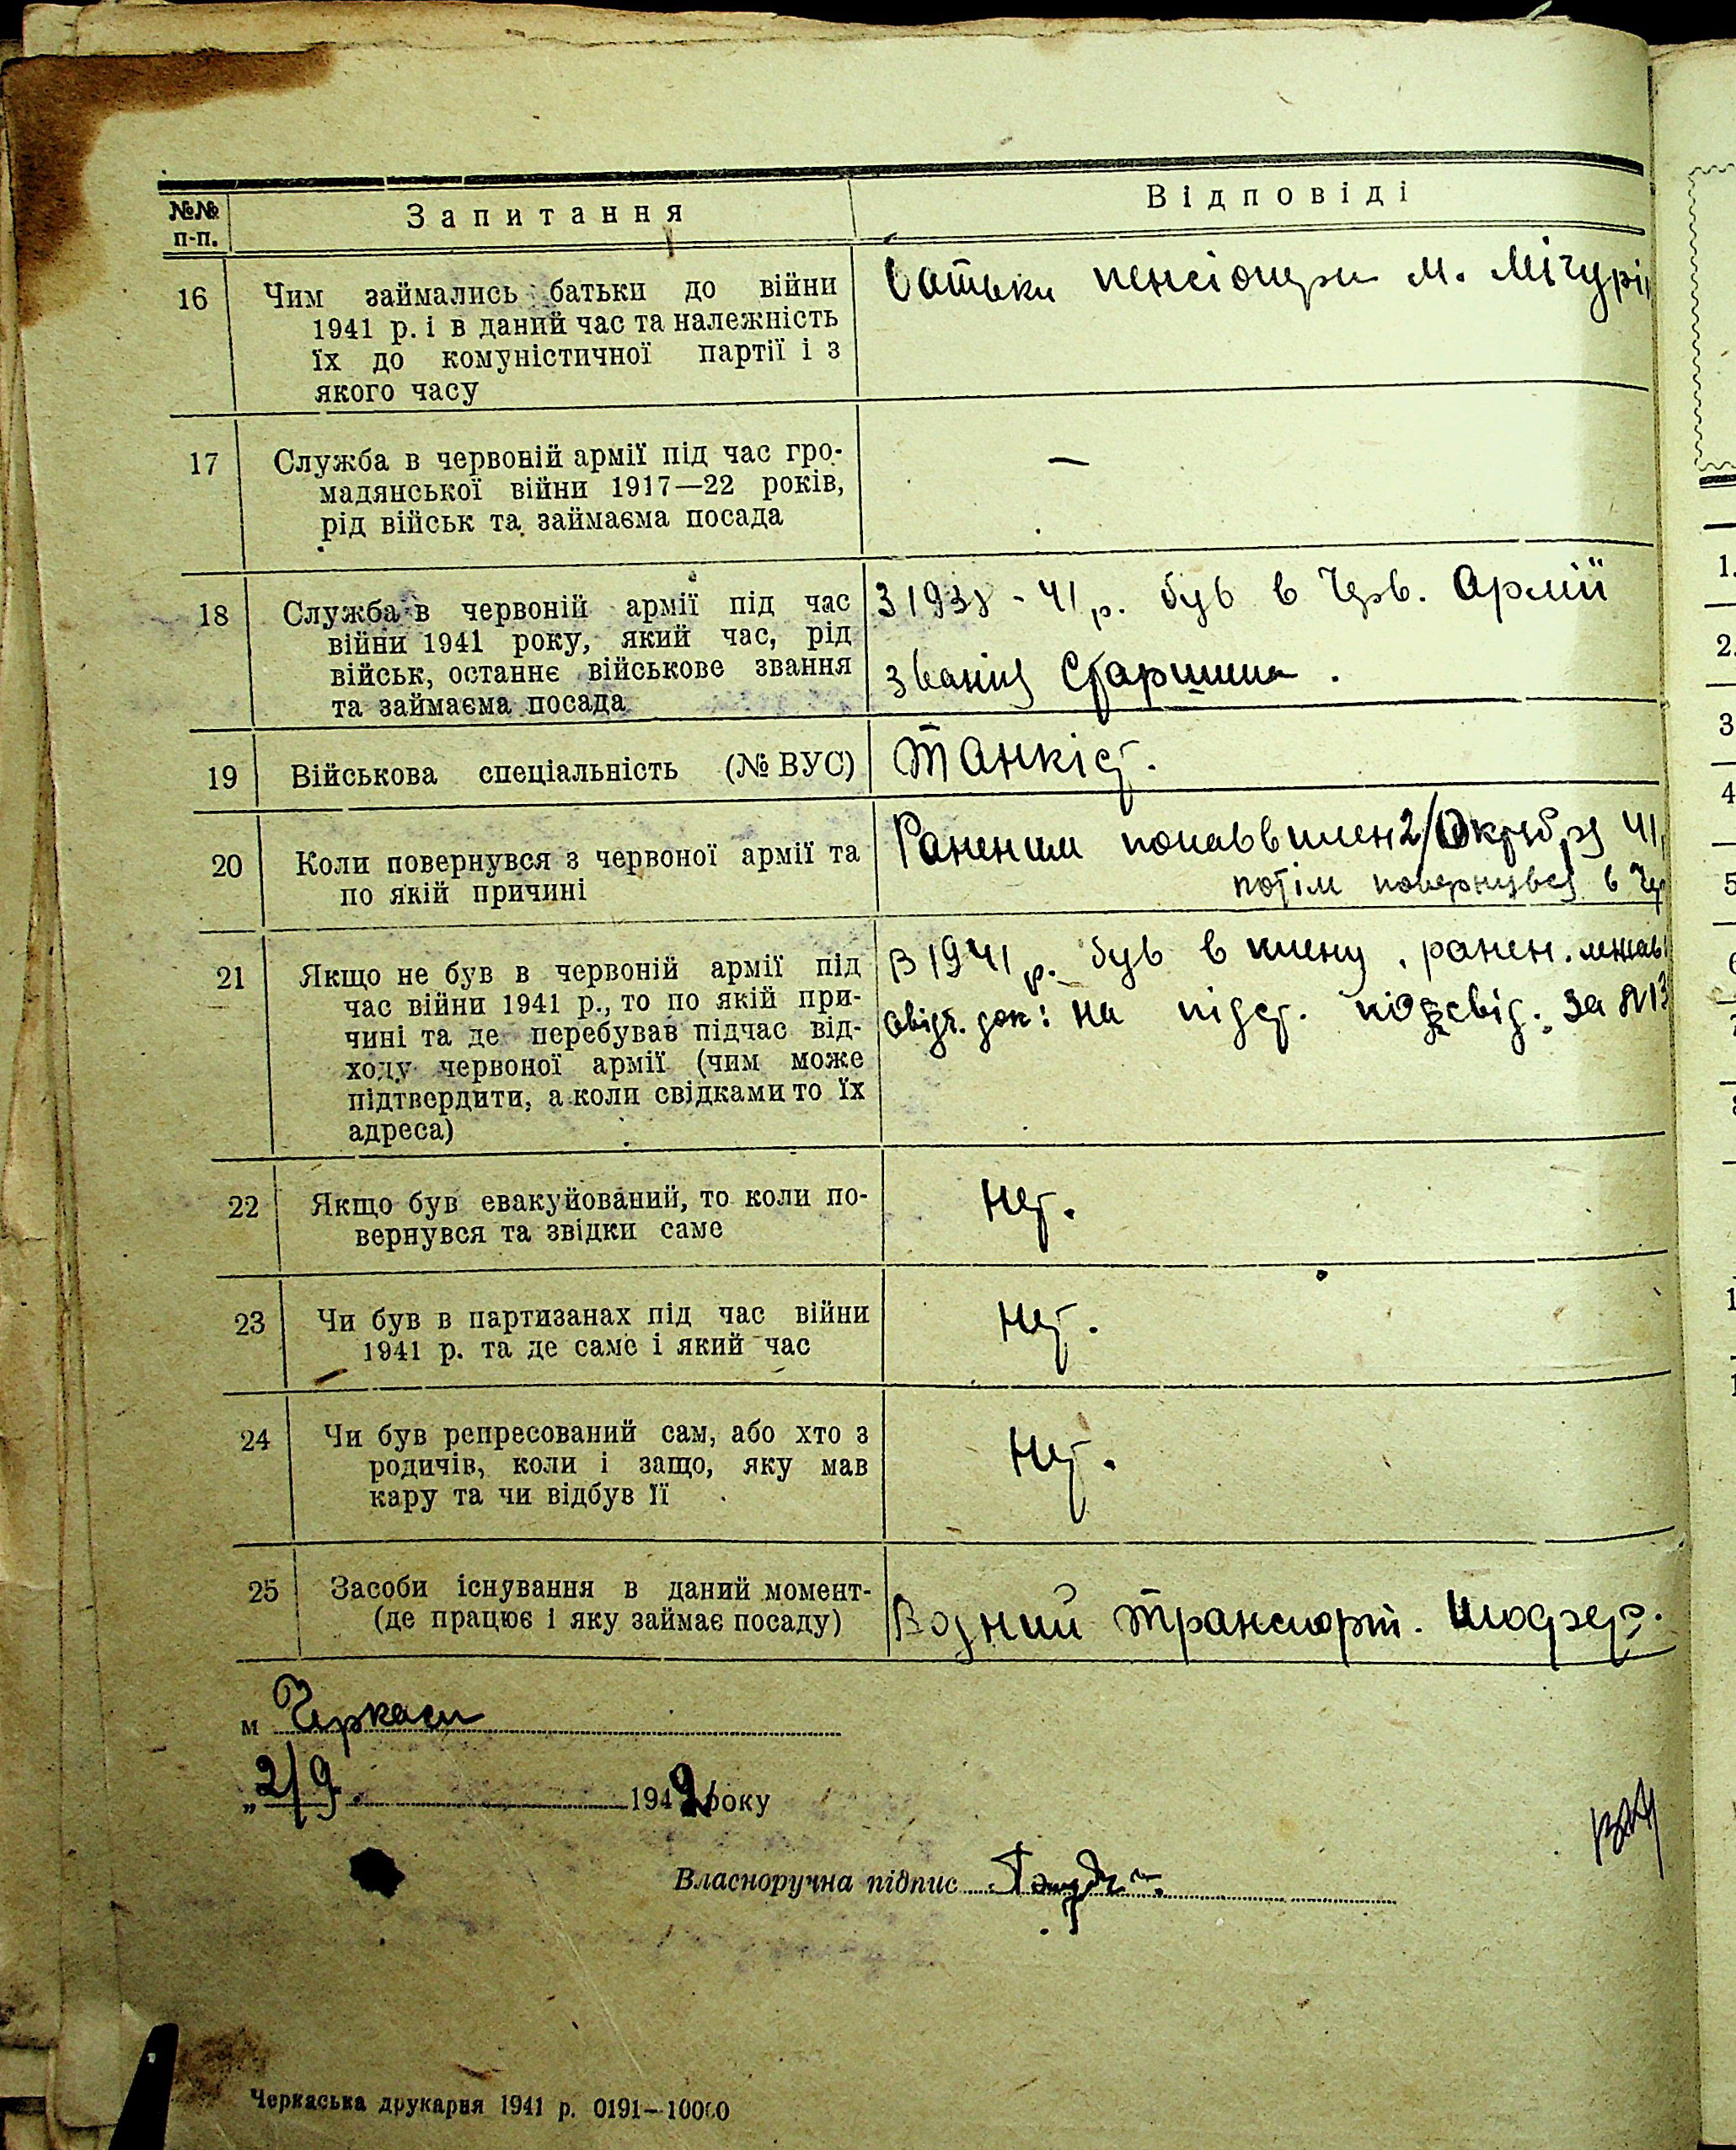 №№ п-п. Запитання Відповіді
16 Чим займались батьки до війни
1941 р. і в даний час та належність
їх до комуністичної партії і з
якого часу
батьки пенсіонери м. Мічурі
17 Служба в червоній армії під час гро-
мадянської війни 1917—22 років,
рід військ та займаєма посада
—
18 Служба в червоній армії під час
війни 1941 року, який час, рід
військ, останнє військове звання
та займаєма посада
З 1938 - 41 р. був в Черв. Армії
званія Старшина.
19 Військова спеціальність (№ ВУС)
Танкіст.
20 Коли повернувся з червоної армії та
по якій причині
Раненим попав в плен 2/Октября 41
потім повернувся в Чер
21 Якщо не був в червоній армії під
час війни 1941 р., то по якій при-
чині та де перебував підчас від-
ходу червоної армії (чим може
підтвердити, а коли свідками то їх
адреса)
В 1941 р. був в плену, ранен. лежав
док: на підст. за №13
22 Якщо був евакуйований, то коли по-
вернувся та звідки саме
Нет.
23 Чи був в партизанах під час війни
1941 р. та де саме і який час
Нет.
24 Чи був репресований сам, або хто з
родичів, коли і защо, яку мав
кару та чи відбув її
Нет.
25 Засоби існування в даний момент-
(де працює і яку займає посаду)
Водний транспорт. Шофер.
м Черкаси
„2/9. 1942 року
Власноручна підпис
Черкаська друкарня 1941 р. 0191—10000
1.
2.
3
4
5